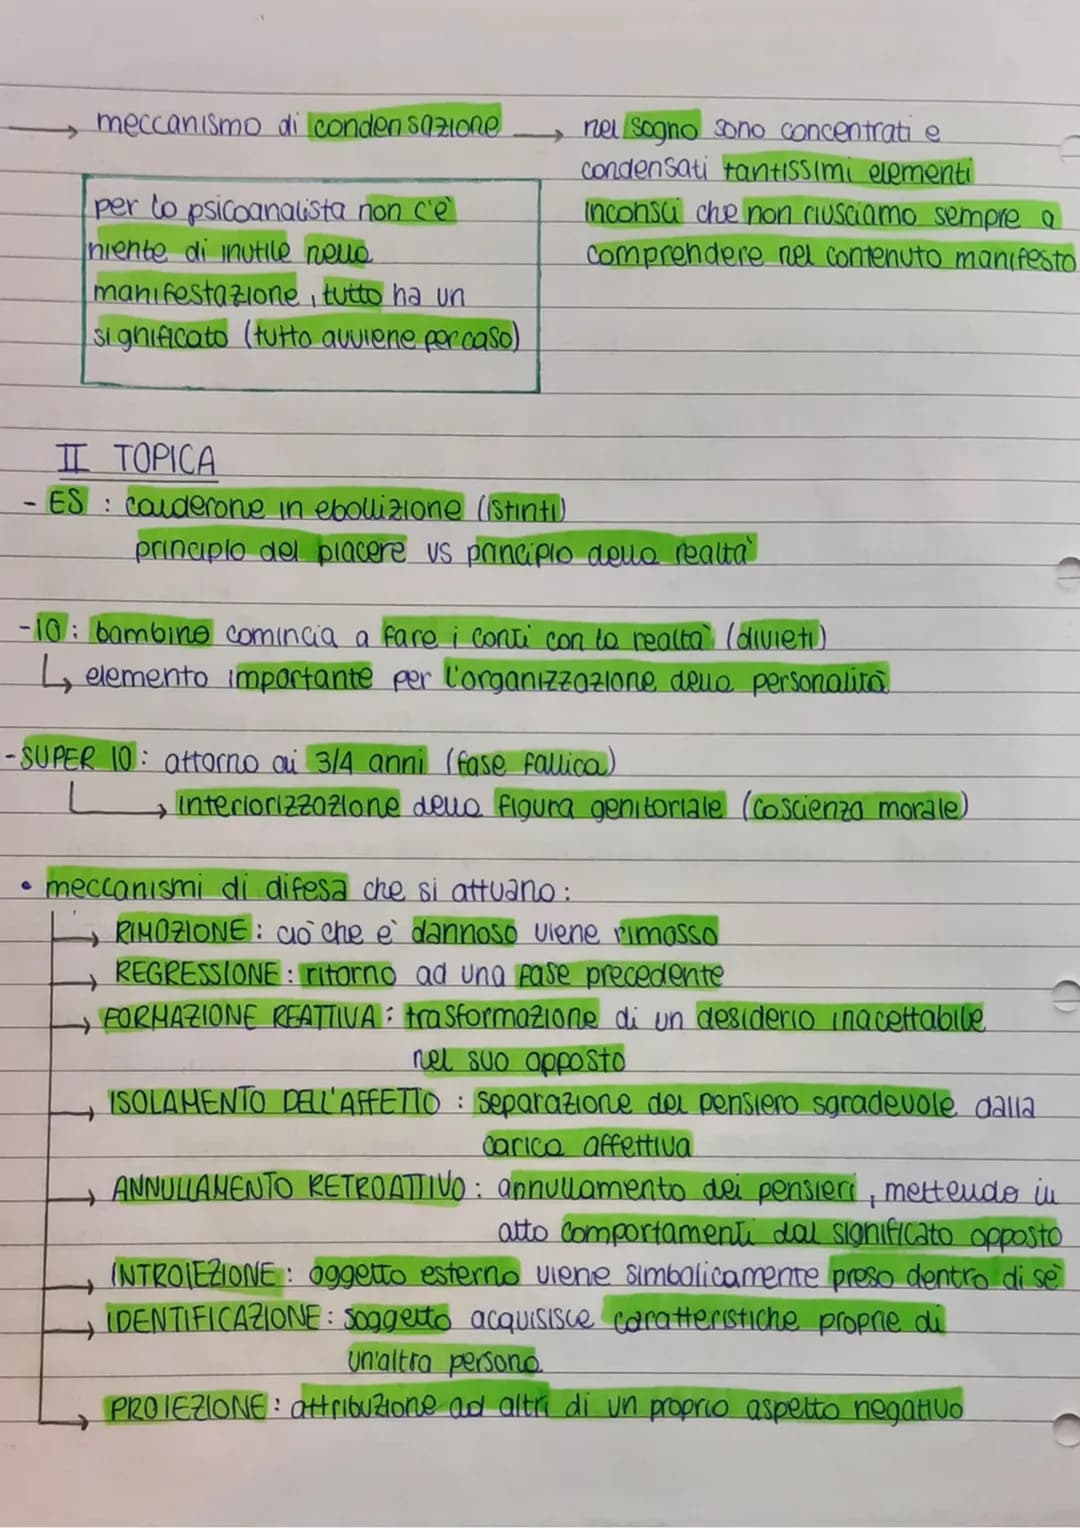 → meccanismo di condensazione → nel sogno sono concentrati e
condensati tantissimi elementi
inconsci che non riusciamo sempre a
comprendere nel contenuto manifesto
per lo psicoanalista non c'è
niente di inutile nella
manifestazione, tutto ha un
significato (tutto avviene per caso)
II TOPICA
- ES : calderone in ebollizione (istinti)
principio del piacere vs principio della realtà
- IO : bambino comincia a fare i conti con la realtà (divieti)
↳ elemento importante per l'organizzazione della personalità
- SUPER IO : attorno ai 3/4 anni (fase fallica)
↳ interiorizzazione della figura genitoriale (coscienza morale)
• meccanismi di difesa che si attuano :
→ RIMOZIONE : ciò che è dannoso viene rimosso
→ REGRESSIONE : ritorno ad una fase precedente
→ FORMAZIONE REATTIVA : trasformazione di un desiderio inacettabile
nel suo opposto
→ ISOLAMENTO DELL'AFFETTO : separazione del pensiero sgradevole dalla
carica affettiva
→ ANNULLAMENTO RETROATTIVO : annullamento dei pensieri, mettendo in
atto comportamenti dal significato opposto
→ INTROIEZIONE : oggetto esterno viene simbolicamente preso dentro di sè
→ IDENTIFICAZIONE : soggetto acquisisce caratteristiche proprie di
un'altra persona
→ PROIEZIONE : attribuzione ad altri di un proprio aspetto negativo